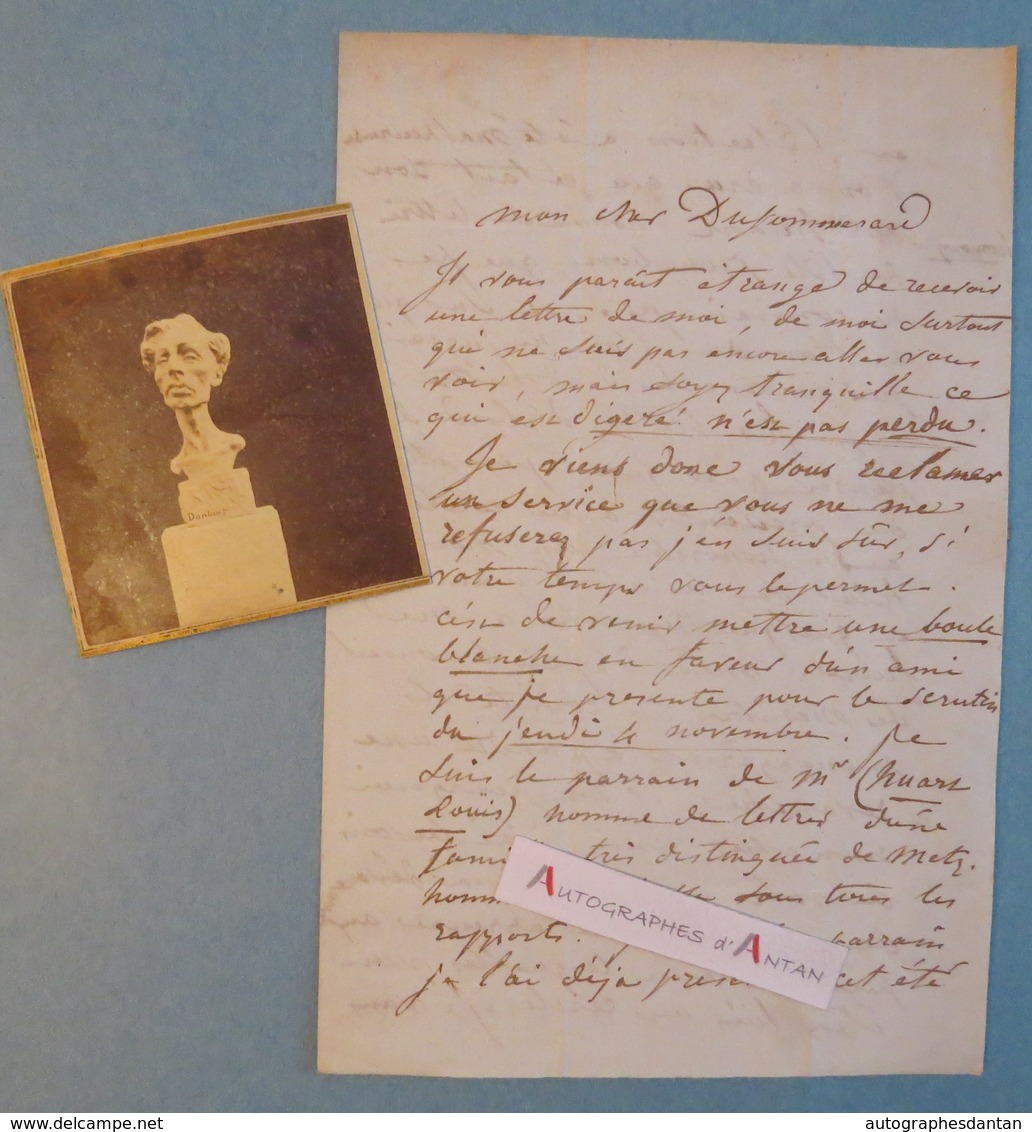 mon cher Dusommerard
Il vous parait étrange de recevoir
une lettre de moi, de moi surtout
qui ne suis pas encore aller vous
voir, mais soyez tranquille ce
qui est digeré n'est pas perdu.
Je viens donc vous reclamer
un service que vous ne me
refuserez pas j'en suis sûr, si
votre temps vous le permet.
c'est de venir mettre une boule
blanche en faveur d'un ami
que je presente pour le scrutin
du jeudi 4 novembre. Je
suis le parrain de Mr (huart
Louïs) homme de lettres d'une
très distinguée de Metz.
sous tous les
rapports. parrain
je l'ai déja cet été
Dantan
AUTOGRAPHES d'ANTAN
autographesdantan